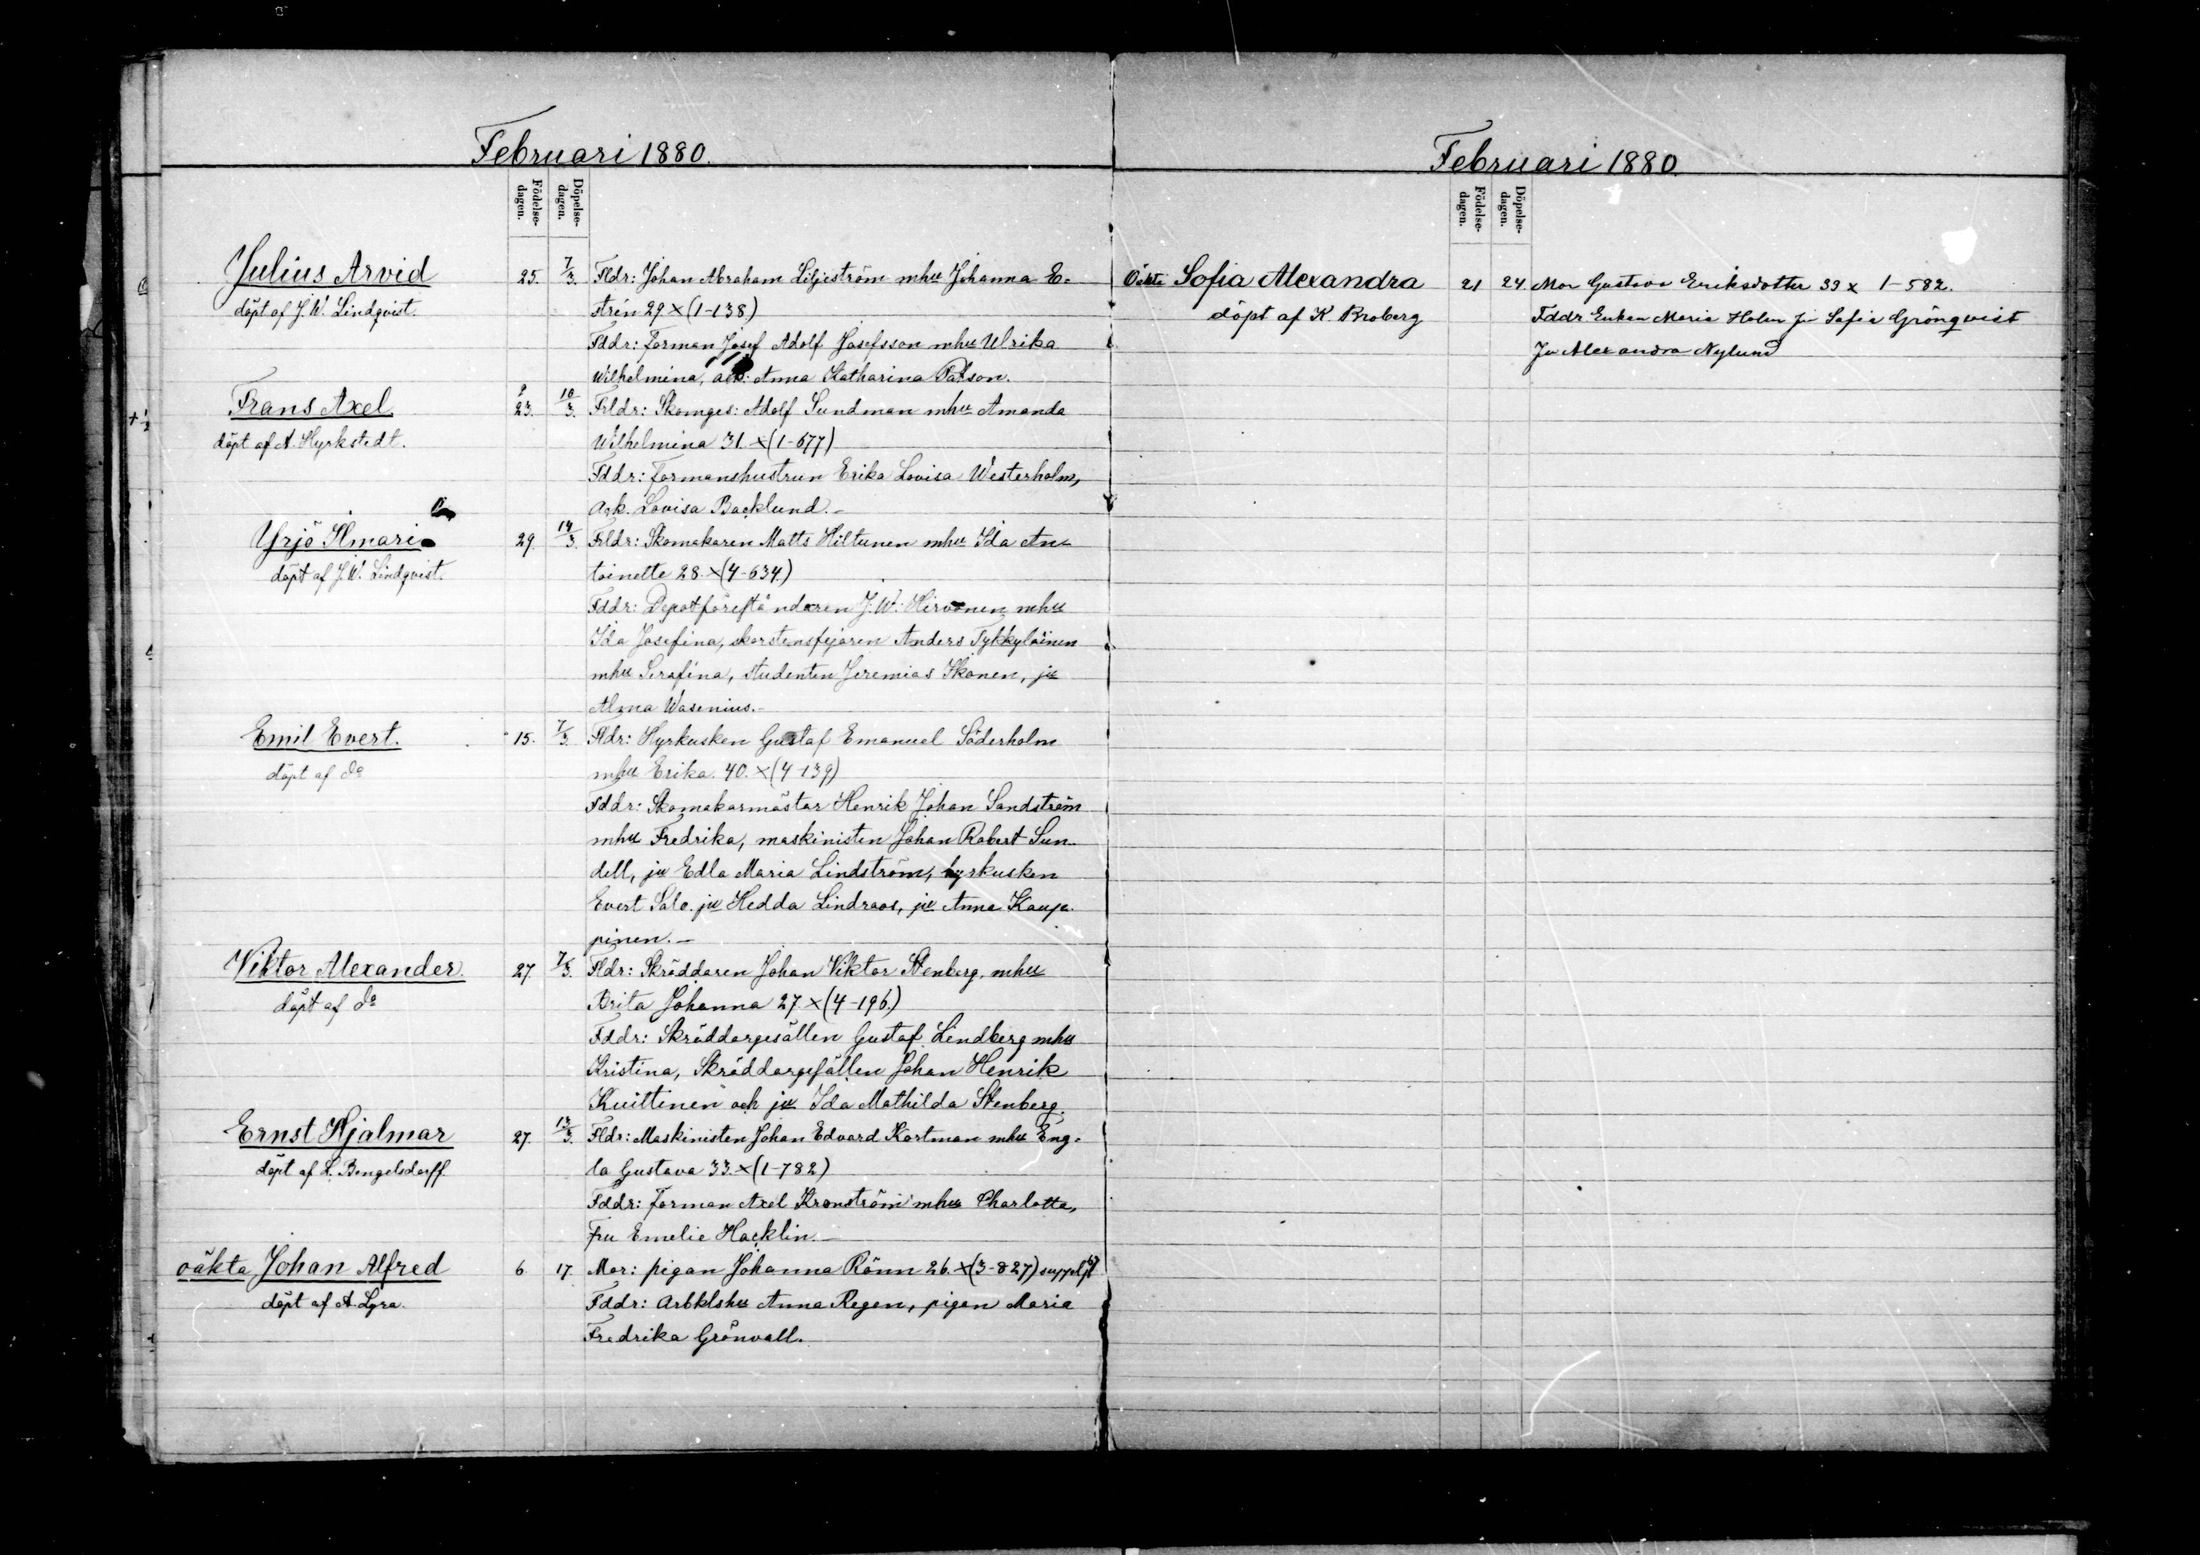 Februari 1880.
Födelse-dagen.
Döpelse-dagen.
Julius Arvid 25. 7/3. Fldr: Johan Abraham Liljeström mhu Johanna E-
döpt af J. W. Lindqvist. strén 29 × (1-138)
Fddr: forman Josef Adolf Josefsson mhu Ulrika
Wilhelmina, Anna Katharina
Frans Axel 23. 10/3. Frldr: Skomges: Adolf Sundman mhu Amanda
döpt af A. Hyrkstedt. Wilhelmina 31. × (1-677)
Fddr: formanshustrun Erika Lovisa Westerholm,
Lovisa Backlund.-
Yrjö Ilmari 29. 14/3. Frldr: Skomakaren Matts Hiltunen mhu Ida An-
döpt af J. W. Lindqvist. toinette 28. × (4-634)
Fddr: Depotföreståndaren J. W: Hirvonen mhu
Ida Josefina, skorstensfejaren Anders Tykkyläinen
mhu Serafina, studenten Jeremias Ikonen, ju
Alma Wasenius.-
Emil Evert. 15. 7/3. Fldr: Hyrkusken Gustaf Emanuel Söderholm
döpt af do mhu Erika. 40. × (4-139)
Fddr: Skomakarmästar Henrik Johan Sandström
mhu Fredrika, maskinisten Johan Robert Sun-
dell, ju Edla Maria Lindström, hyrkusken
Evert Salo. ju Hedda Lindroos, ju Anna Kaup-
pinen.-
Viktor Alexander. 27. 7/3. Fldr: Skräddaren Johan Viktor Stenberg. mhu
döpt af do Brita Johanna 27. × (4-196.)
Fddr: Skräddargesällen Gustaf Lindberg mhu
Kristina, Skräddargesällen Johan Henrik
Kuittinen och ju Ida Mathilda Stenberg.
Ernst Hjalmar 27. 13/3. Fldr: Maskinisten Johan Edvard Kortman mhu Eng-
döpt af L. Bengelsdorff la Gustava 33. × (1-782)
Fddr: forman Axel Kronström mhu Charlotta,
fru Emelie Hacklin.-
oäkta Johan Alfred 6. 17. Mor: pigan Johanna Rönn 26. × (3-827)
döpt af A. Lyra. Fddr: arbklshu Anna Regen, pigan Maria
Fredrika Grönvall.
Februari 1880.
Födelse-dagen.
Döpelse-dagen.
Oäkta Sofia Alexandra 21 24 Mor Gustava Eriksdotter 33 × 1-582.
döpt af K. Broberg Fddr Enkan Maria Holm Ju Sofia Grönqvist
Ju Alexandra Nylund